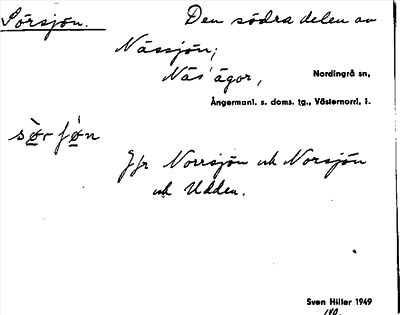 Sörsjön. Den södra delen av
Nässjön;
Näs' ägor, Nordingrå sn,
Ångermanl. s. doms. tg., Västernorrl. l.
Jfr Norrsjön och Norsjön
och Udden.
Sven Hiller 1949